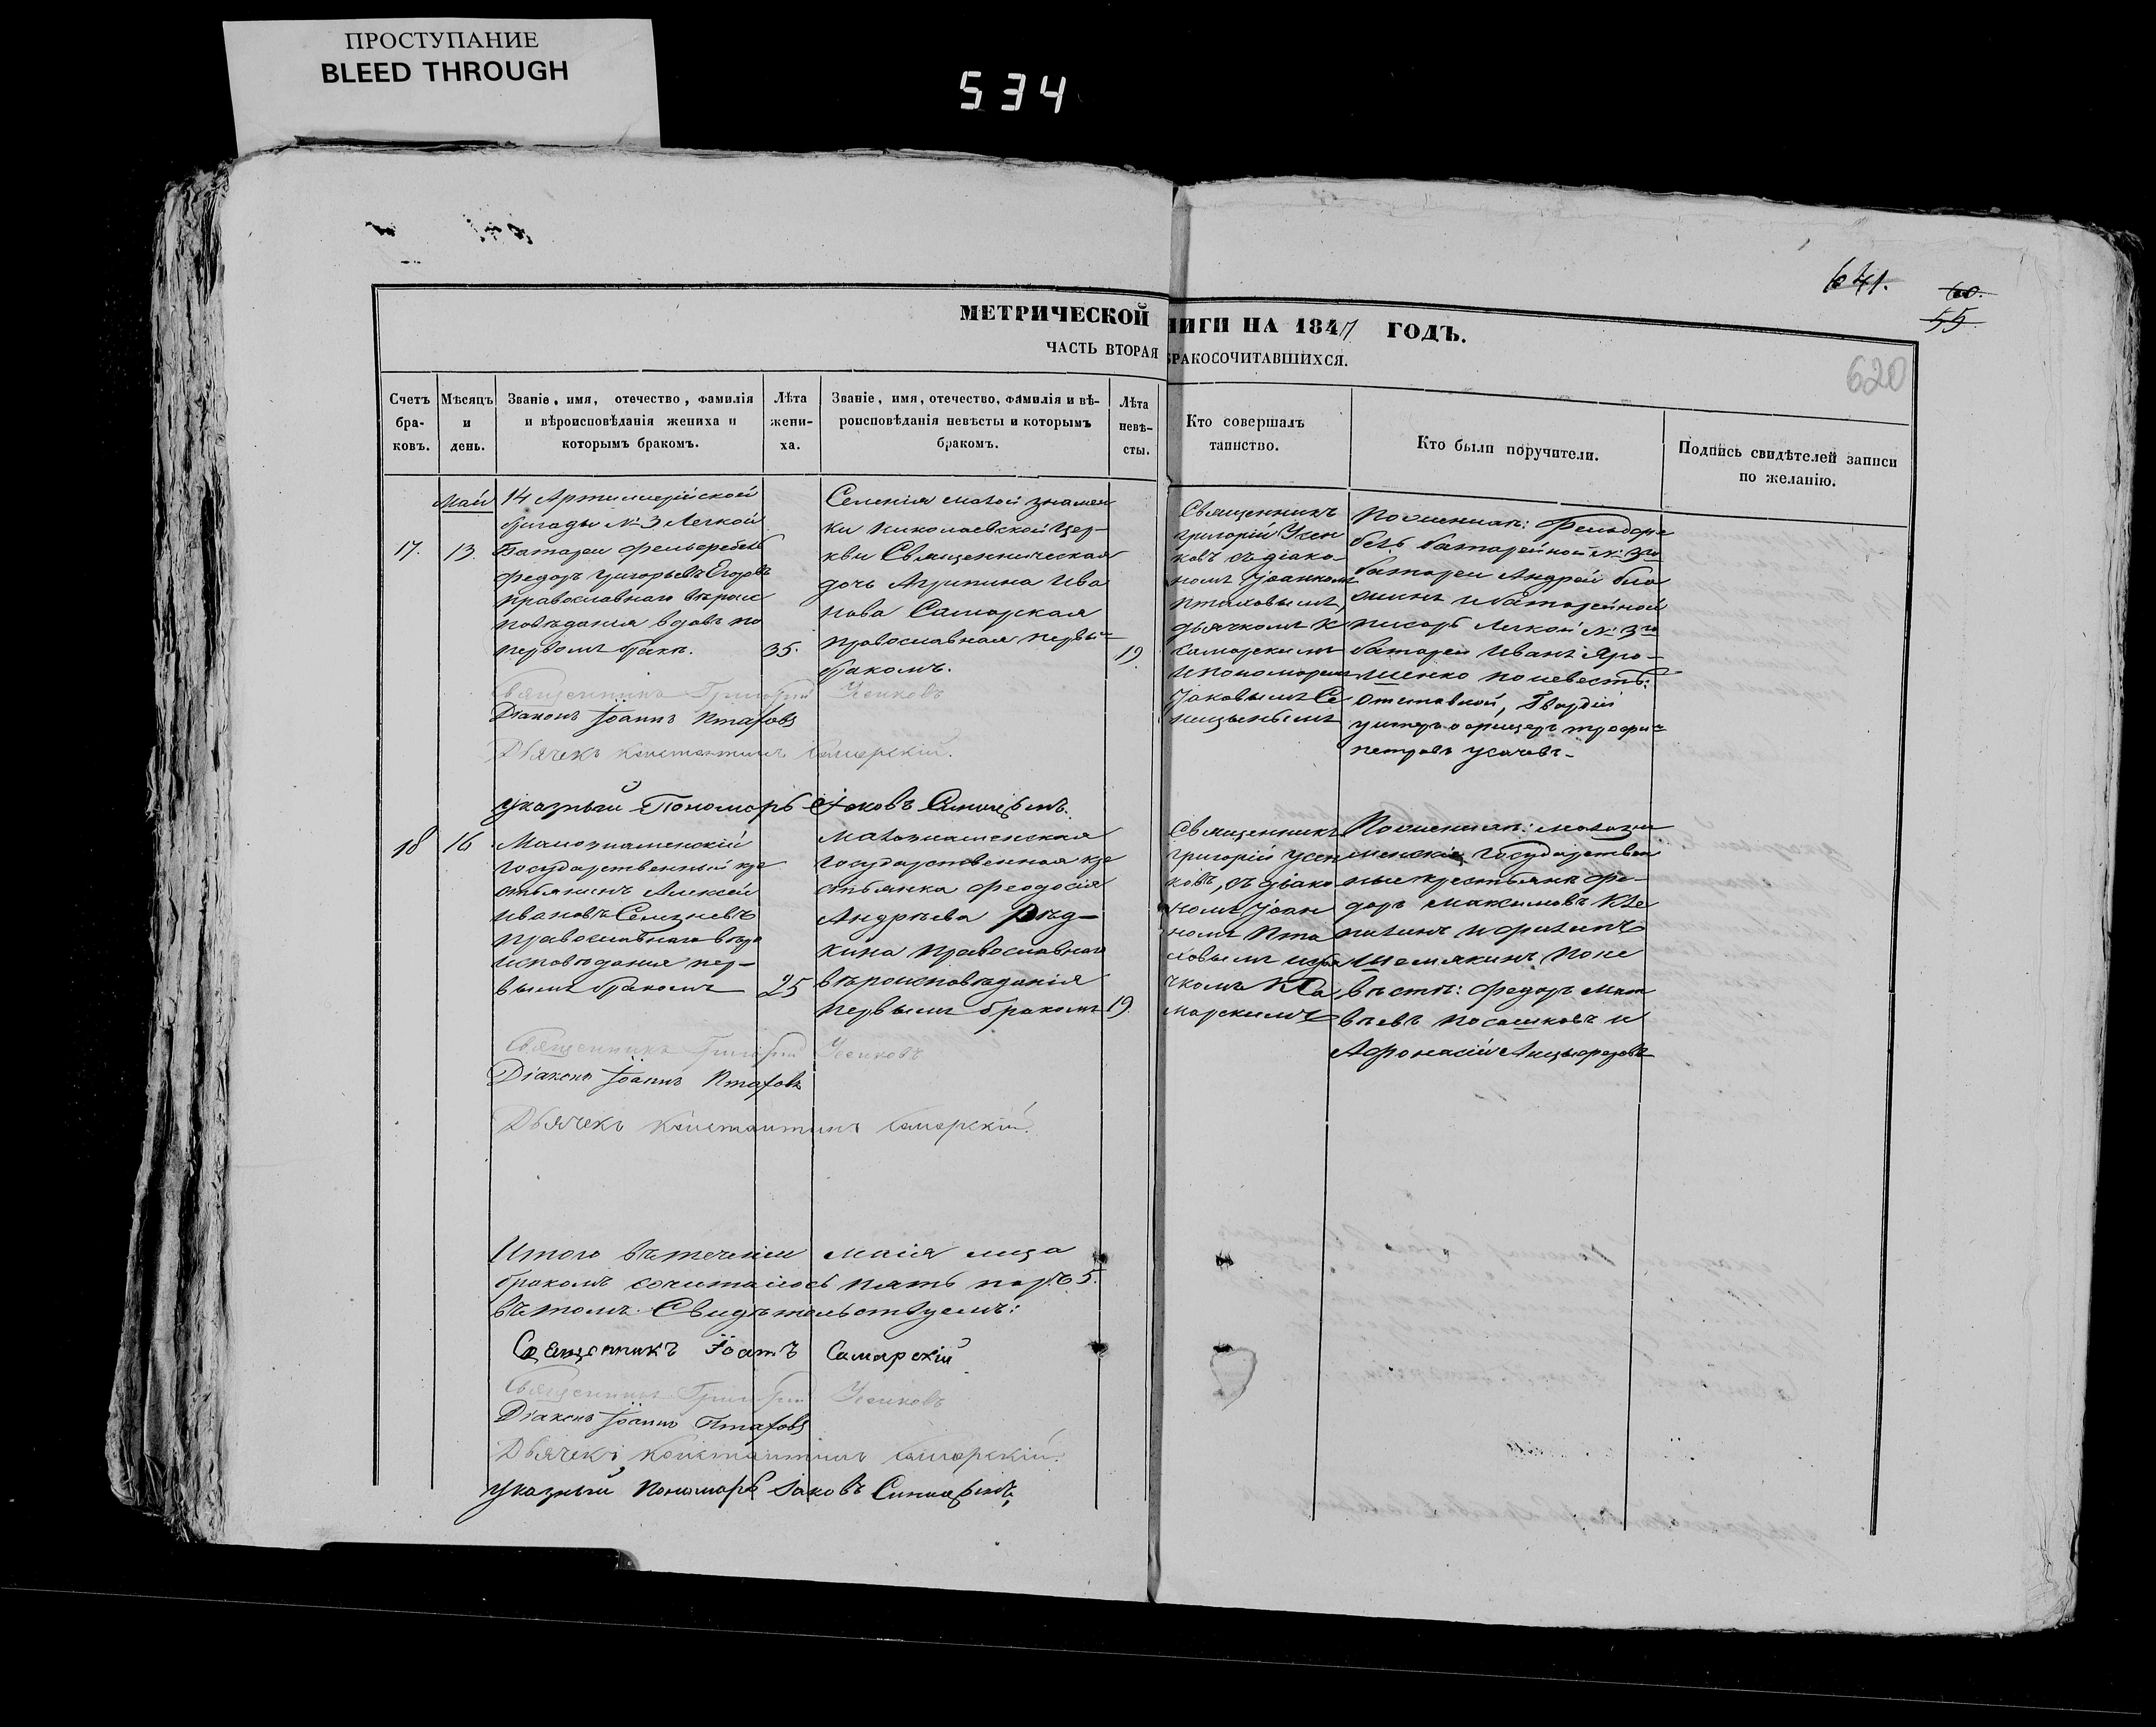 ПРОСТУПАНИЕ
BLEED THROUGH
534
641.
60.
55
620
МЕТРИЧЕСКОЙ
НИГИ НА 1847 ГОДЪ.
ЧАСТЬ ВТОРАЯ
БРАКОСОЧИТАВШИХСЯ.
Счетъ бра-ковъ.
Мѣсяцъ и день.
Званіе, имя, отечество, фамилія
и вѣроисповѣданія жениха и
которымъ бракомъ.
Лѣта жени-ха.
Званіе, имя, отечество, фамилія и вѣ-
роисповѣданія невѣсты и которымъ
бракомъ.
Лѣта невѣ-сты.
Кто совершалъ
таинство.
Кто были поручители.
Подпись свидѣтелей записи
по желанію.
17.
Май
13.
14 Артиллерійской
бригады № 3 Легкой
Батареи
Федоръ Григорьевъ Егоровъ
православнаго вѣроис
повѣданія вдовъ по
первомъ бракѣ.
35.
Селенія Малой знамен
ки Николаевской Цер-
кви Священническая
дочь Агрипина Ива
нова Самарская
православная первы
бракомъ.
19
Священникъ
григорій Усен
ковъ съ діако-
номъ Іоанномъ
Птаховымъ,
дьячкомъ К
Самарскимъ
и пономаремъ
Іаковымъ Се
ницынымъ
По женихѣ: Фельдфе
бель батарейной № 3го
батареи Андрей
и батарейной
писарь Легкой № 3го
батареи Иванъ Яро-
шенко по невестѣ:
Отставной, Гвардіи
унтеръ офицеръ трофи
петровъ Усачевъ-
Священникъ Григорій Усенковъ
Діаконъ Іоаннъ Птаховъ
Дьячекъ Константинъ Самарскій.
указный Пономарь Іаковъ Синицынъ.
18
16
Малознаменскій
государственный кре
стьянинъ Алексѣй
Ивановъ Селезневъ
православнаго вѣро
исповѣданія пер-
вымъ бракомъ
25
Малознаменская
государственная кре
стьянка Феодосія
Андрѣева Рѣд-
кина православнаго
вѣроисповѣданія
первымъ бракомъ
19.
Священникъ
григорій Усен
ковъ, съ діако
номъ Іоан
номъ Пта
ховымъ и дья
чкомъ К Са
марскимъ
По женихѣ: малозна
менскіе Государствен
ные крестьяне Фе-
доръ Максимовъ
и филипъ
Шемякинъ по не
вѣстѣ: Федоръ Мат
вѣевъ Посашковъ и
Афонасій
Священникъ Григорій Усенковъ
Діаконъ Іоаннъ Птаховъ
Дьячекъ Константинъ Самарскій.
Итого въ теченіи маія мца
бракомъ сочиталось пять паръ 5.
въ томъ Свидѣтельствуемъ:
Священникъ Іоаннъ Самарскій
Священникъ Григорій Усенковъ
Діаконъ Іоаннъ Птаховъ
Дьячекъ Константинъ Самарскій.
Указный Пономарь Іаковъ Синицынъ